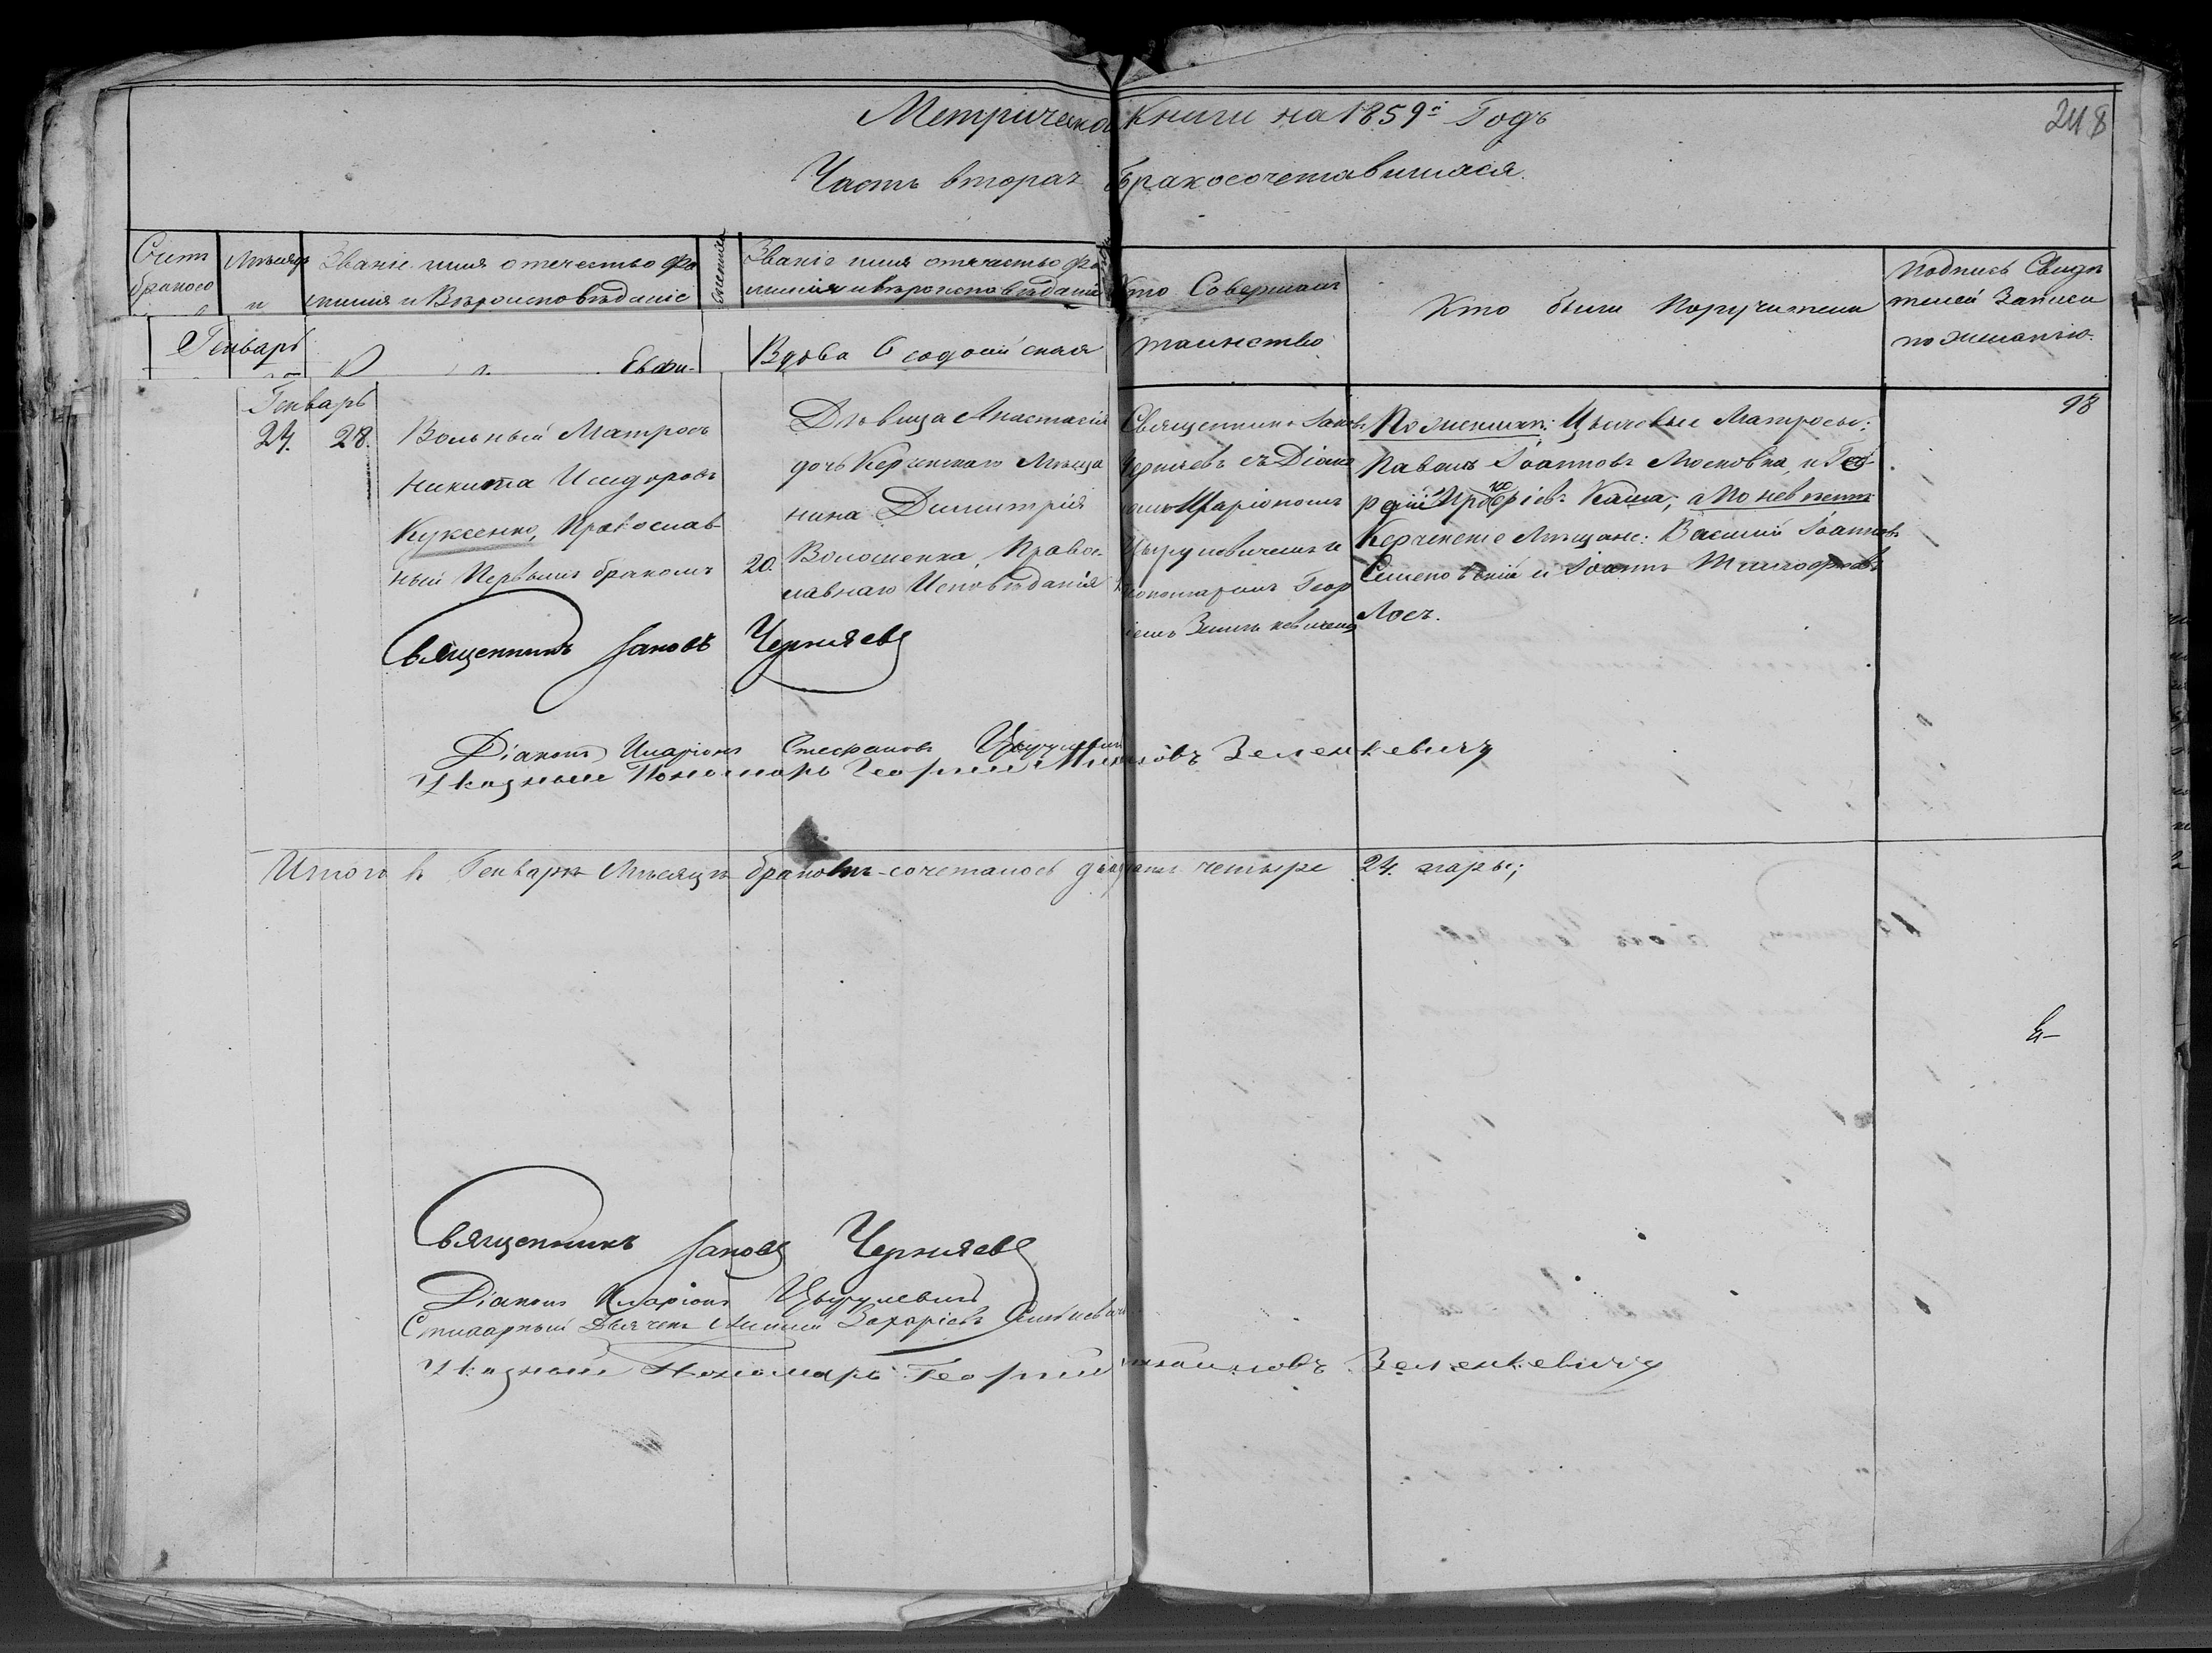 Метрической Книги на 1859й Годъ
248
Часть вторая Бракосочетавшiяся.
Счет
брако
Мѣсяцъ
и
Званiе имя отечество фа
милiя и Вѣроисповѣданiе
Званiе имя отечество фа
милiя и вѣроисповѣданiе
Кто Совершалъ
таинство
Кто были Поручители
Подпись Свидѣ
телей Записи
по желанiю.
Генварь
Евфи-
Вдова Ѳеодосiйская
Генварь
24. 28.
Вольный Матросъ
Никита Исидоровъ
Куксенко, Православ
ный Первымъ бракомъ
20.
Дѣвица Анастасiя
дочь Керченскаго Мѣща
нина Димитрiя
Волошенка, Правос-
лавнаго Исповѣданiя
Священникъ Iаковъ
Чернявъ съ Дiако
номъ Иларiономъ
Цыцулевичемъ и
пономаремъ Геор
гiемъ Зеленкевичемъ
По женихѣ: Матросы:
Павелъ Iоанновъ Московка, и
Каша, а По невѣстѣ
Керченскiе Мѣщане: Василiй Iоанновъ
Семеновскiй и Iоаннъ Тимофеевъ
Лось.
98
Священникъ Iаковъ Черняевъ
Дiаконъ Иларiонъ Стефановъ
Указный Пономарь Георгий Зеленкевичъ
Итого въ Генварѣ Мѣсяцѣ бракомъ сочеталось двадцать четыре 24. пары;
Священникъ Iаковъ Черняевъ
Дiаконъ Иларiонъ Цыцулевичъ
Дьячекъ Захарiевъ
Указный Пономарь Георгий Зеленкевичъ